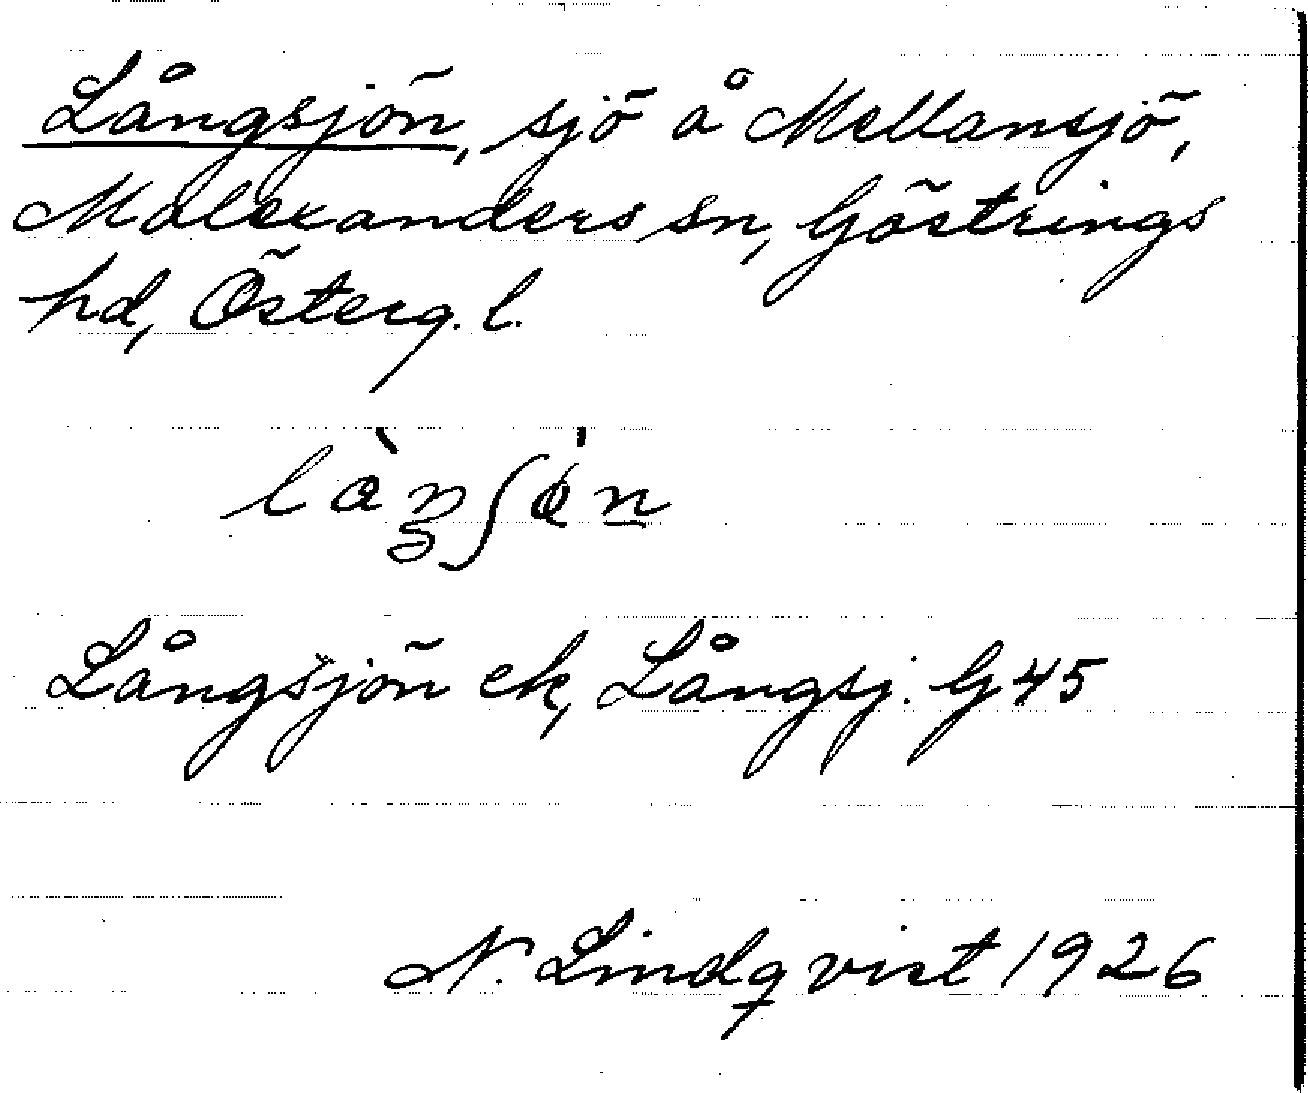 Långsjön, sjö å Mellansjö,
Malexanders sn, Göstrings
hd, Österg. l.
Långsjön ek, Långsj. G 45
N. Lindqvist 1926